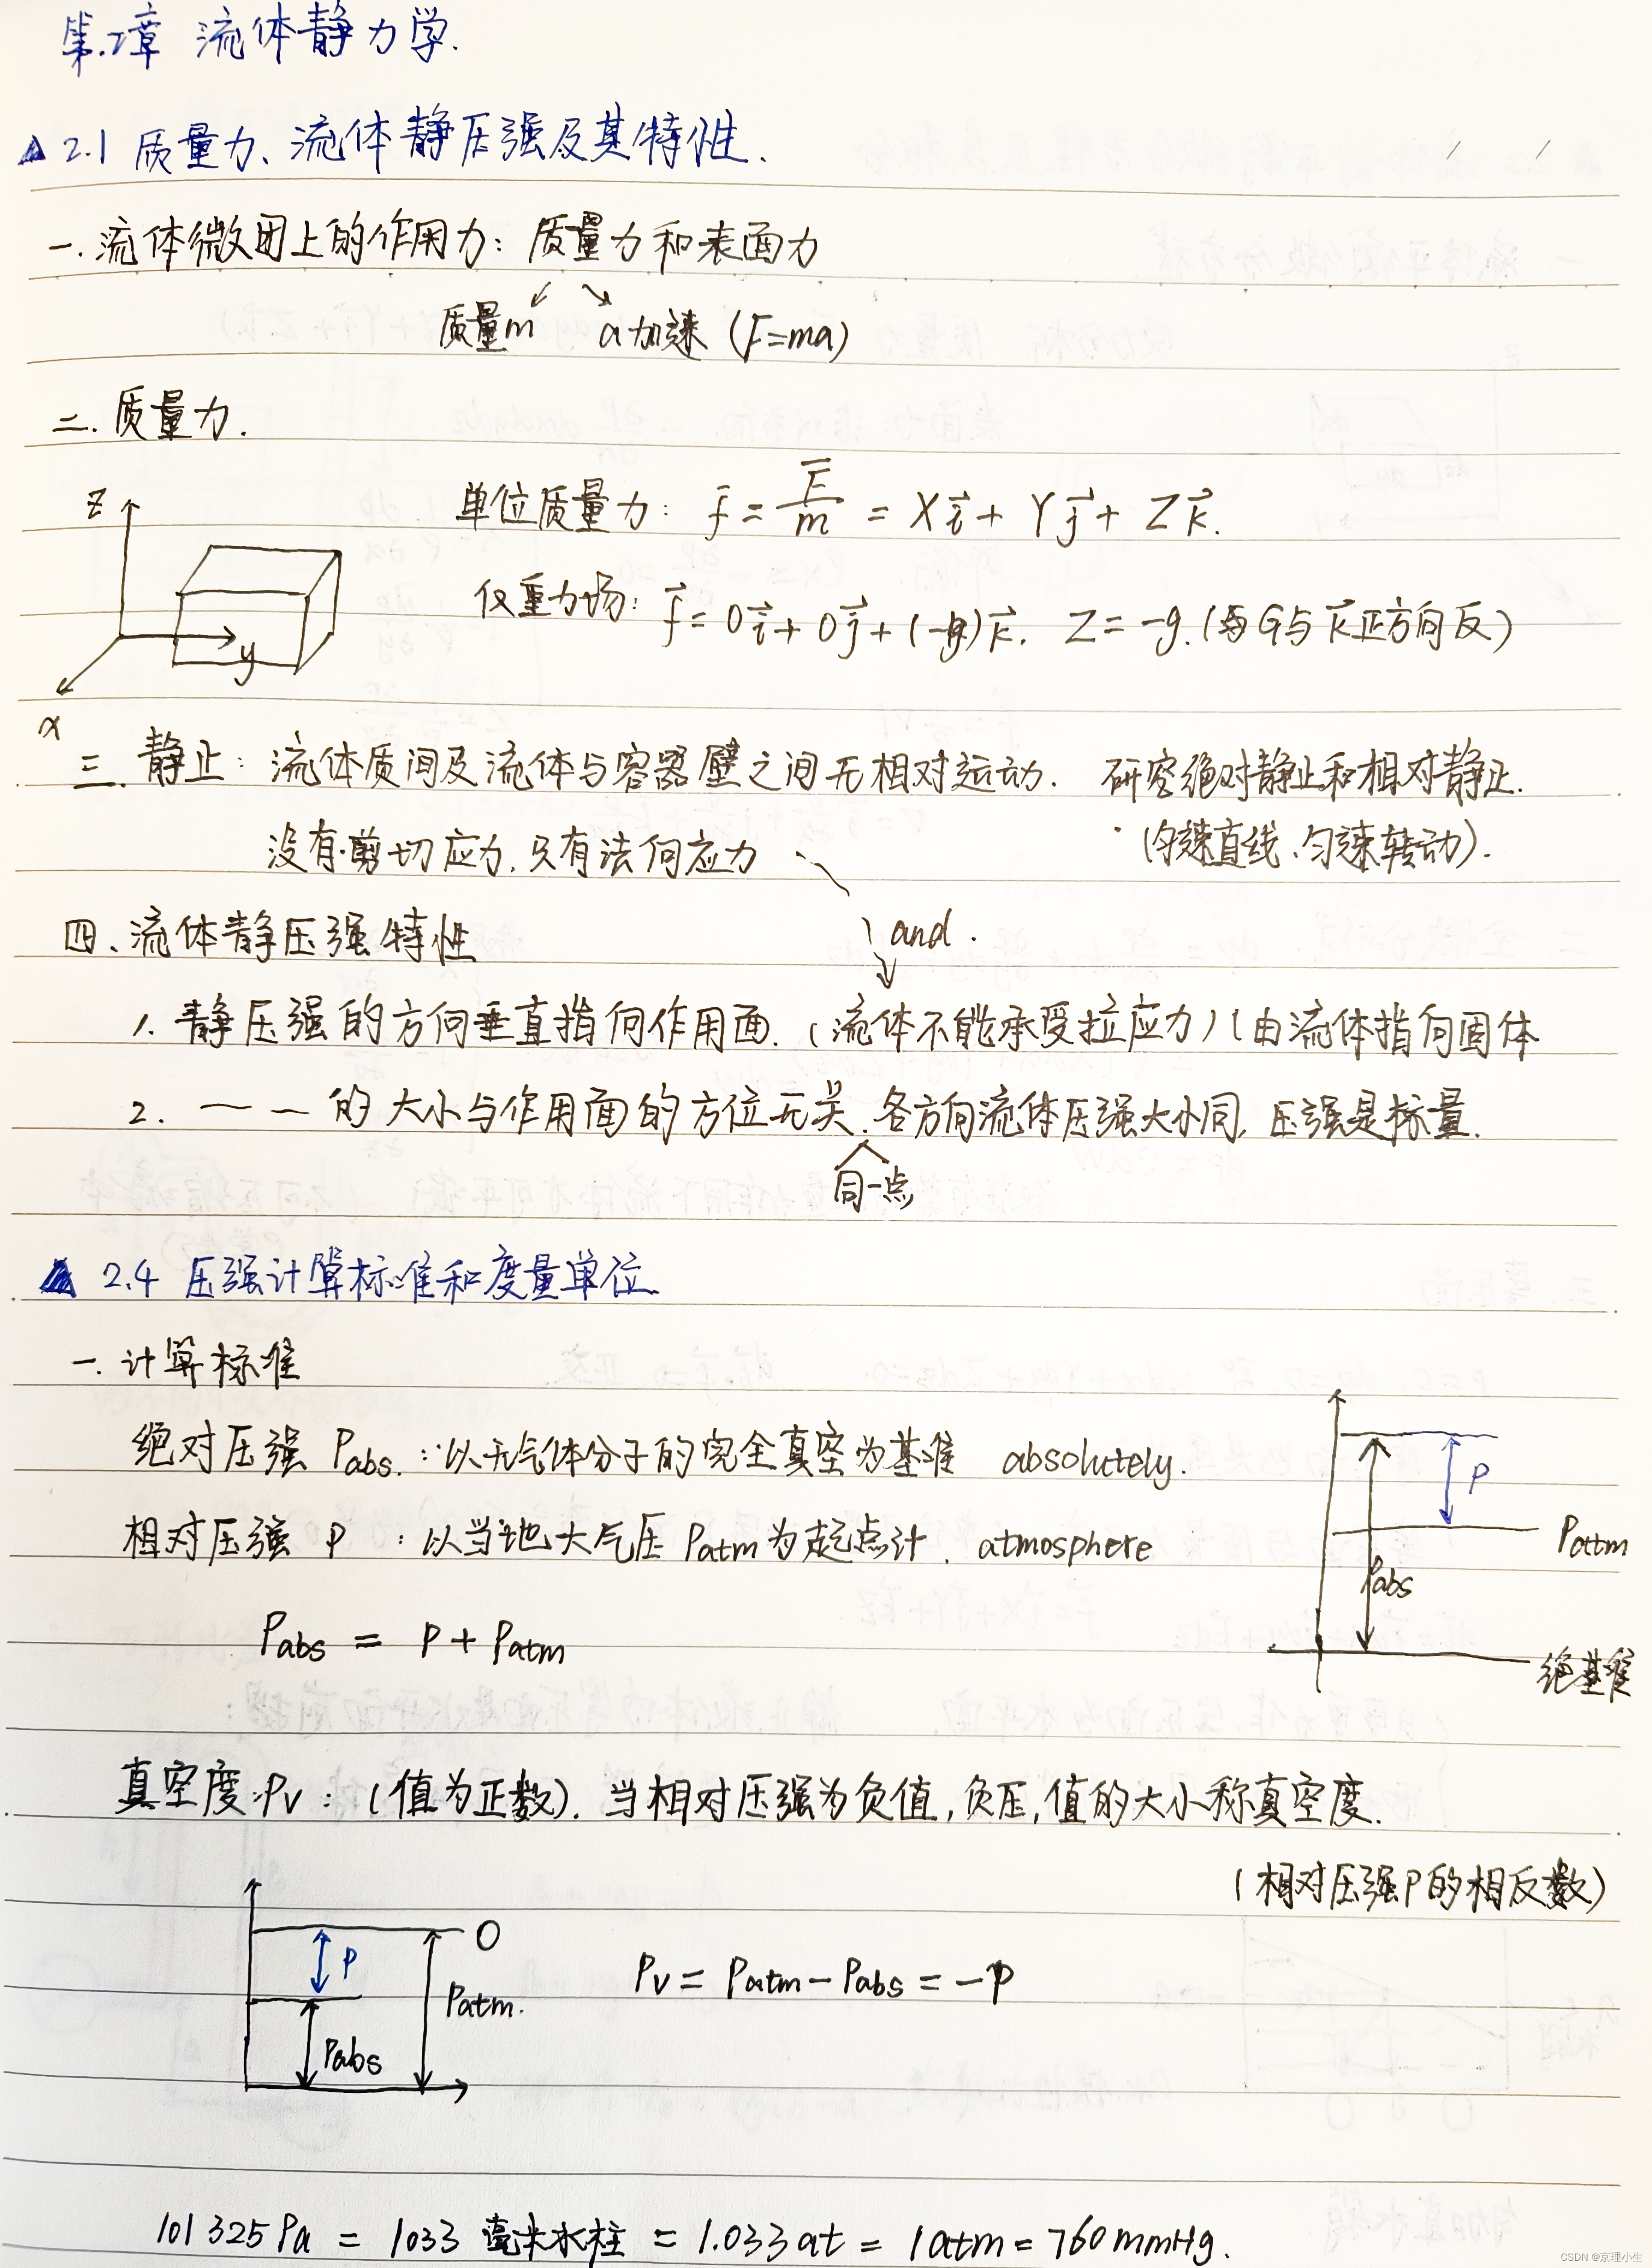 第.2章 流体静力学.
2.1 质量力、流体静压强及其特性.
一. 流体微团上的作用力: 质量力和表面力
质量m a加速 (F=ma)
二. 质量力.
z
单位质量力: f = F/m = Xi + Yj + Zk.
仅重力场: f = 0i + 0j + (-g)k. Z = -g. (G与k正方向反)
y
x
三. 静止: 流体质间及流体与容器壁之间无相对运动. 研究绝对静止和相对静止.
没有剪切应力, 只有法向应力 (匀速直线、匀速转动).
and.
四、流体静压强特性
1. 静压强的方向垂直指向作用面. (流体不能承受拉应力) (由流体指向固体
2. — — 的大小与作用面的方位无关. 各方向流体压强大小同, 压强是标量.
同一点
2.4 压强计算标准和度量单位.
一. 计算标准
绝对压强 Pabs. : 以无气体分子的完全真空为基准 absolutely.
相对压强 P : 以当地大气压 Patm 为起点计. atmosphere
P
Patm
Pabs
绝基准
Pabs = P + Patm
真空度: Pv : (值为正数). 当相对压强为负值, 负压, 值的大小称真空度.
(相对压强P的相反数)
O
P
Patm.
Pabs
Pv = Patm - Pabs = -P
101 325 Pa = 1033 毫米水柱 = 1.033 at = 1 atm = 760 mmHg.
CSDN @京理小生